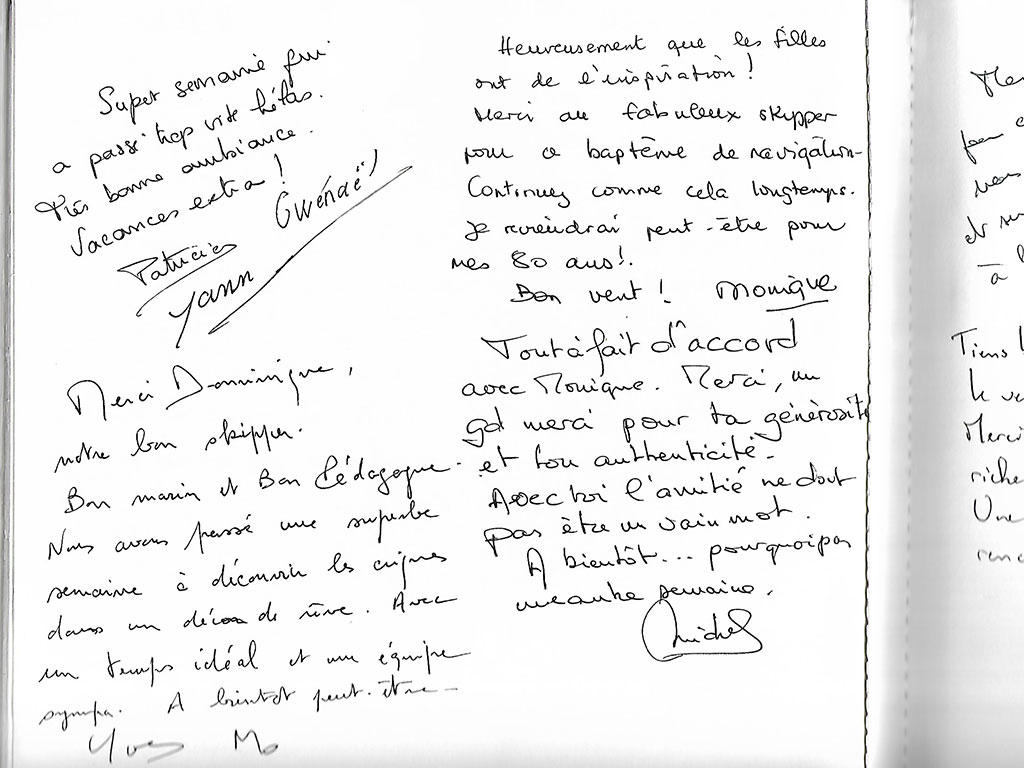 Super semaine qui
a passé trop vite hélas.
Très bonne ambiance.
Vacances extra !
Gwénaël
Patricia
Yann
Merci Dominique,
notre bon skipper.
Bon marin et Bon Pédagogue.
Nous avons passé une superbe
semaine à découvrir les criques
dans un décor de rêve. Avec
un temps idéal et une équipe
sympa. A bientot peut-être
Yves Mo
Heureusement que les filles
ont de l'inspiration !
Merci au fabuleux skipper
pour ce baptême de navigation
Continuez comme cela longtemps.
Je reviendrai peut-être pour
mes 80 ans !.
Bon vent ! Monique
Tout à fait d'accord
avec Monique. Merci, un
gd merci pour ta générosité
et ton authenticité.
Avec toi l'amitié ne doit
pas être un vain mot.
A bientôt... pourquoi pas
une autre semaine.
Michel
Tiens
Merci
riche
Une
renc